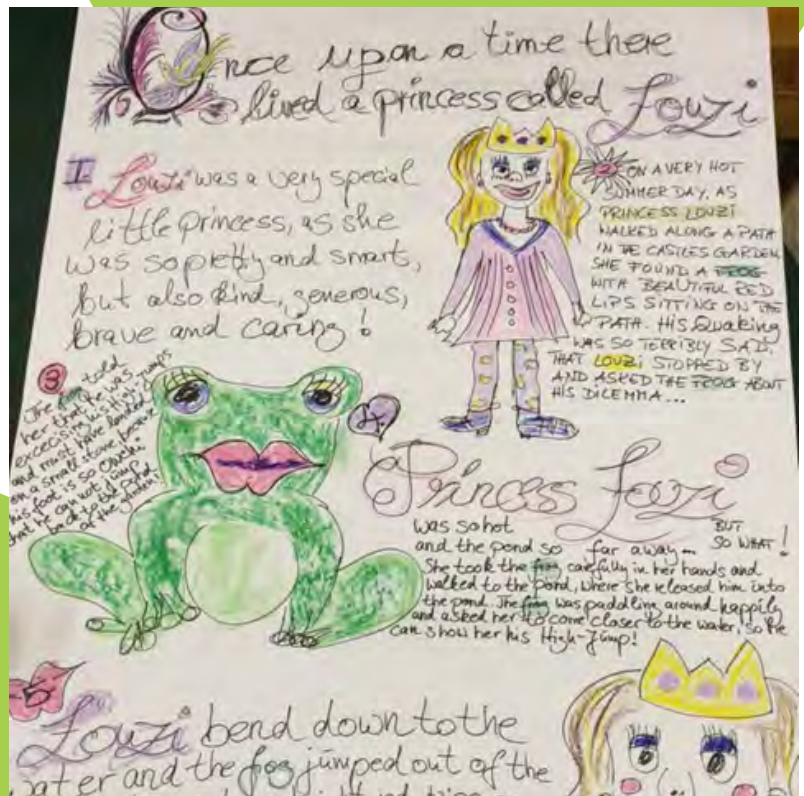 Once upon a time there
lived a princess called Louzi
I. Louzi was a very special
little princess, as she
was so pretty and smarts,
but also kind, generous,
brave and caring!
2 ON A VERY HOT
SUMMER DAY, AS
PRINCESS LOUZI
WALKED ALONG A PATH
IN DE CASTLES GARDEN
SHE FOUND A FROG
WITH BEAUTIFUL RED
LIPS SITTING ON THE
PATH. HIS Quaking
WAS SO TERRIBLY SAD,
THAT LOUZI STOPPED BY
AND ASKED THE FROG ABOUT
HIS DILEMMA...
3
The frog told
her that he was
excecising his High-Jumps
and must have landed
on a small stone, because
his foot is so "Quch"
that he can not jump
back to the pond
of the garden!
4.
Princess Louzi
was so hot BUT
and the pond so far away... SO WHAT!
She took the frog carefully in her hands and
walked to the pond, where she released him into
the pond. The frog was paddling around happily
and asked her to come closer to the water, so he
can show her his High-Jump!
5
Louzi bend down to the
water and the frog jumped out of the